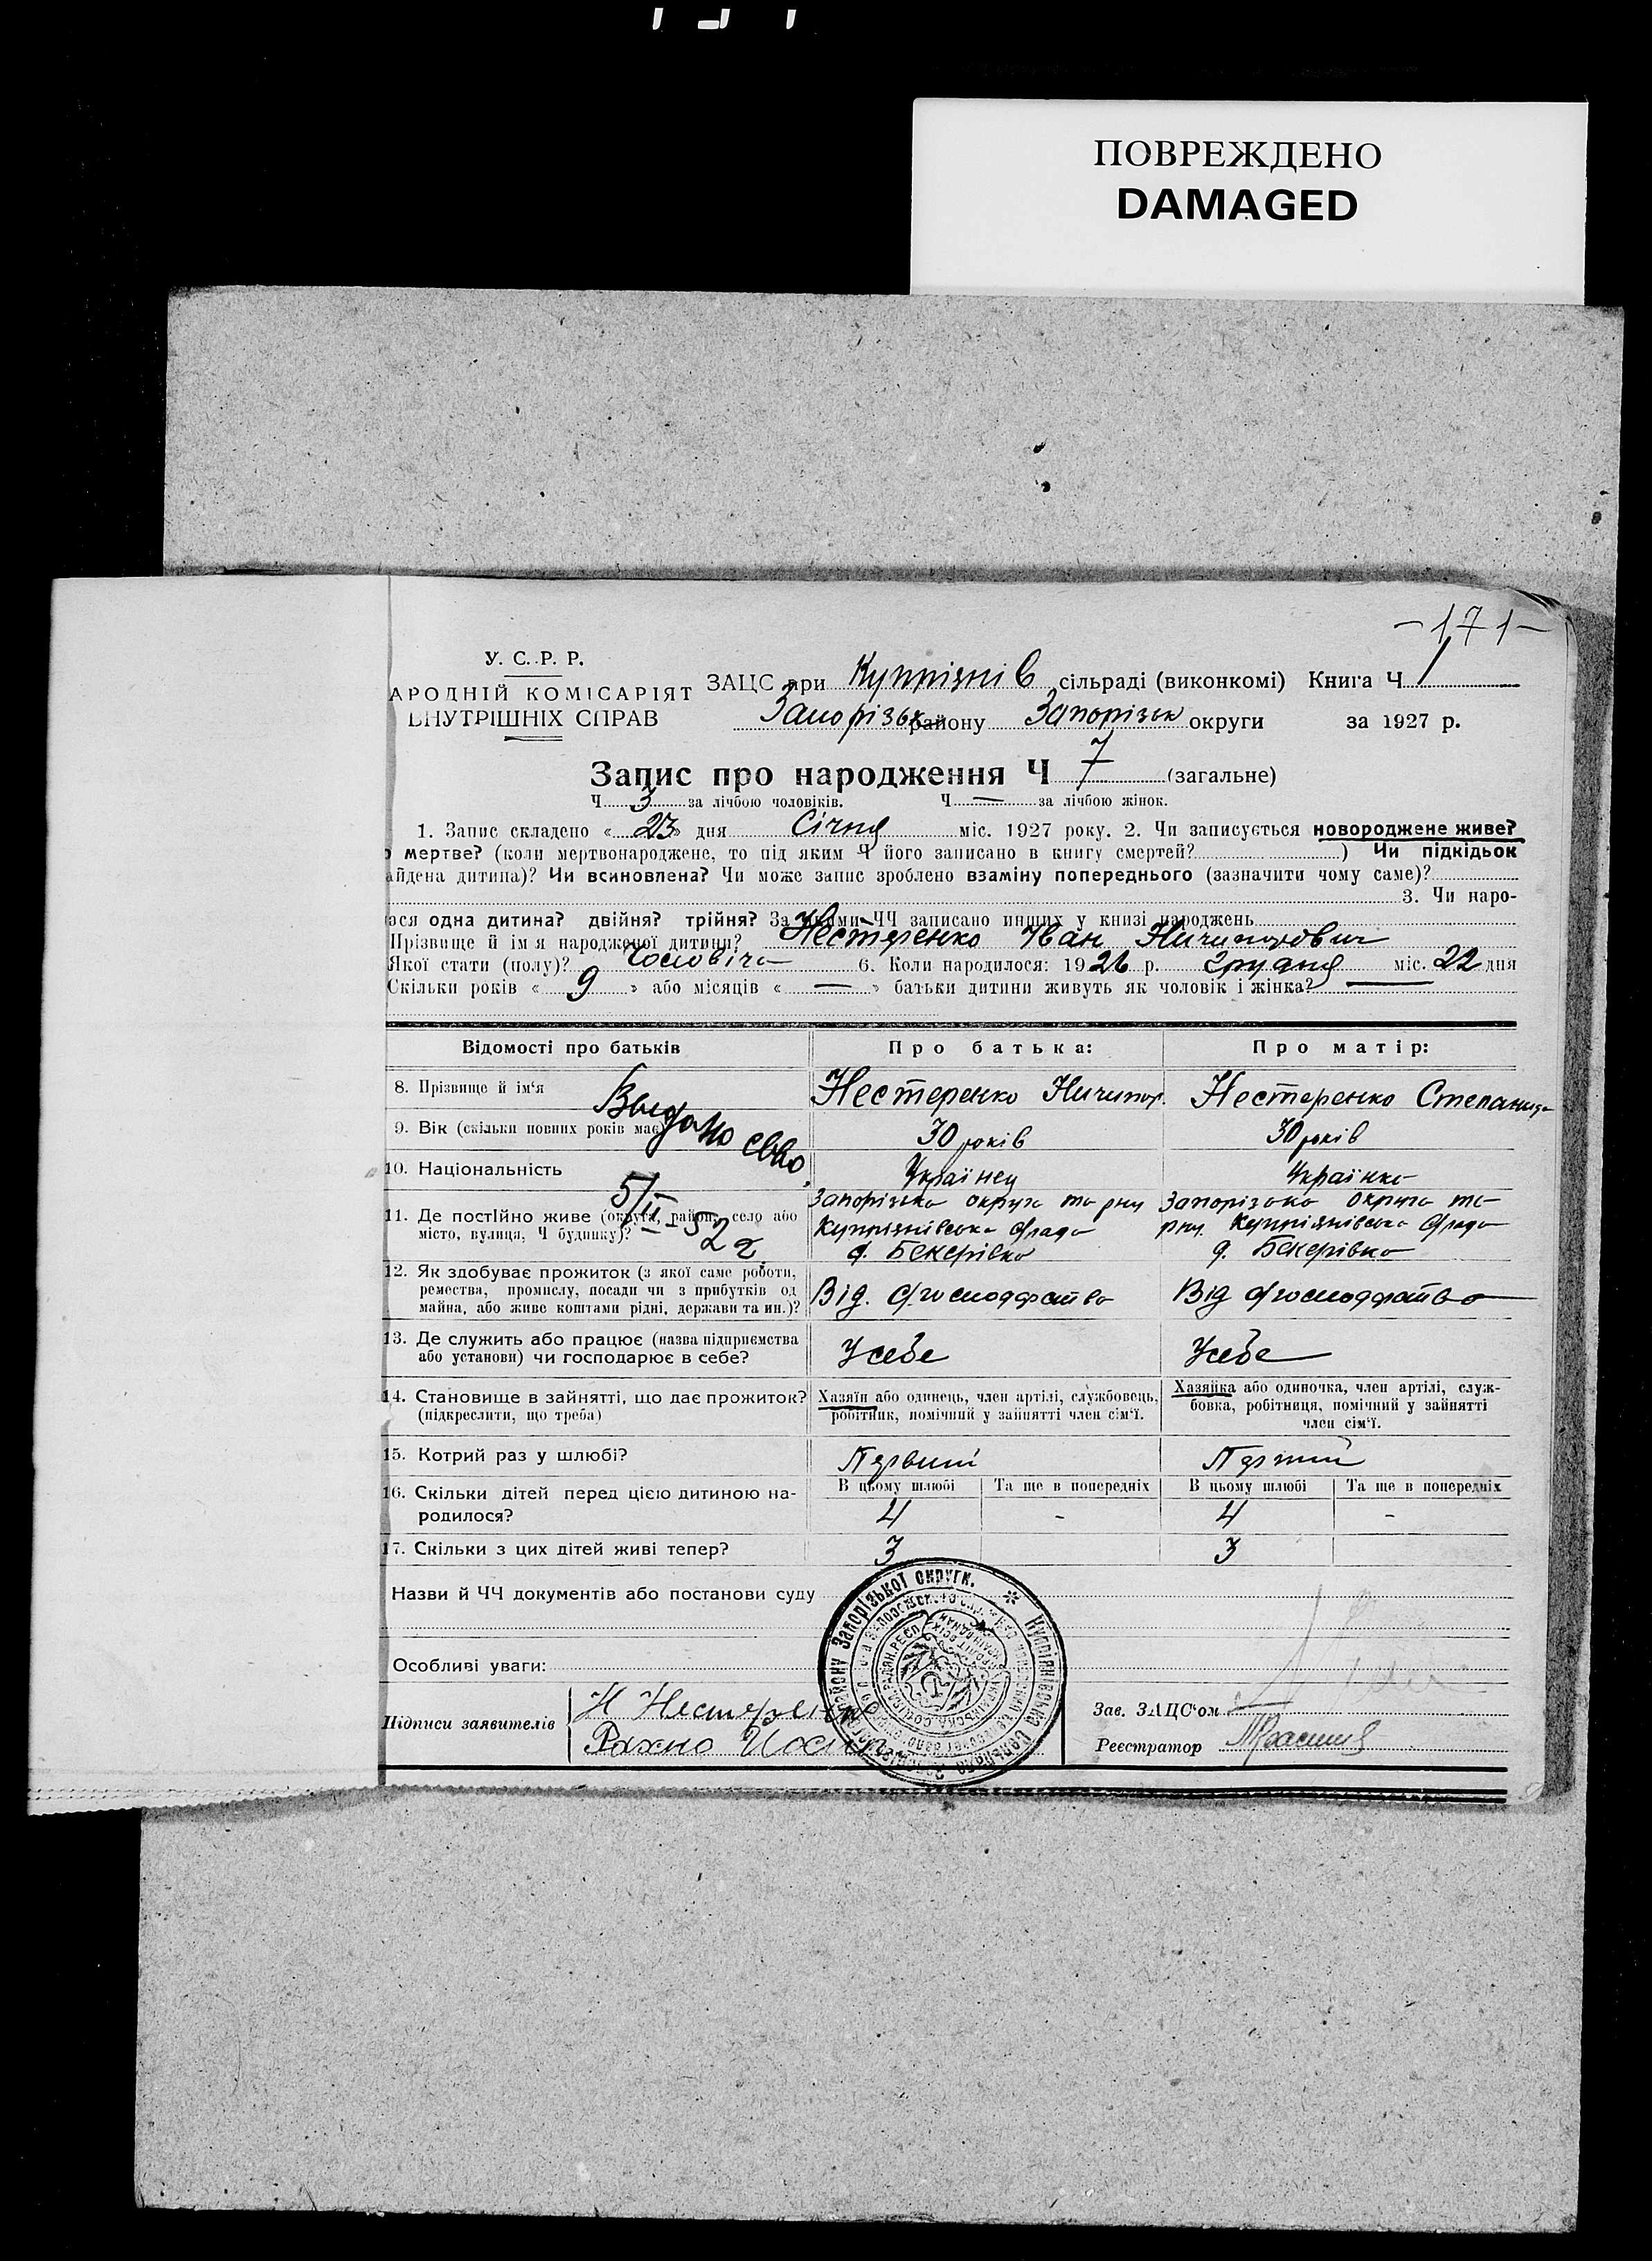 ПОВРЕЖДЕНО
DAMAGED
-171-
У. С. Р. Р.
АРОДНІЙ КОМІСАРІЯТ
ВНУТРІШНІХ СПРАВ
ЗАЦС при Купріянів сільраді (виконкомі) Книга Ч 1
Запорізьк району Запорізьк округи за 1927 р.
Запис про народження Ч 7 (загальне)
Ч 3 за лічбою чоловіків. Ч — за лічбою жінок.
1. Запис складено « 23 » дня Січня міс. 1927 року. 2. Чи записується новороджене живе?
о мертве? (коли мертвонароджене, то під яким Ч його записано в книгу смертей? ) Чи підкідьок
айдена дитина)? Чи всиновлена? Чи може запис зроблено взаміну попереднього (зазначити чому саме)?
3. Чи наро-
ася одна дитина? двійня? трійня? За якими ЧЧ записано инших у книзі народжень
Прізвище й ім'я народженої дитини? Нестеренко Іван Ничипорович
Якої стати (полу)? Чоловіча 6. Коли народилося: 1926 р. Грудня міс. 22 дня
Скільки років « 9 » або місяців « — » батьки дитини живуть як чоловік і жінка? —
Відомості про батьків Про батька: Про матір:
8. Прізвище й ім'я Нестеренко Ничипор. Нестеренко Степанида
Выдано свво,
5/II-52 г.
9. Вік (скільки повних років має) 30 років 30 років
10. Національність Українец Українка
11. Де постійно живе (округа, район, село або
місто, вулиця, Ч будинку)?
Запорізька округа та р-ну
Купріянівська с/рада
с. Бекерівка
Запорізька округа та
р-ну Купріянівська с/рада
с. Бекерівка
12. Як здобуває прожиток (з якої саме роботи,
ремества, промислу, посади чи з прибутків од
майна, або живе коштами рідні, держави та ин.)?
Від с/господарства Від с/господарства
13. Де служить або працює (назва підприємства
або установи) чи господарює в себе?
У себе У себе
14. Становище в зайнятті, що дає прожиток?
(підкреслити, що треба)
Хазяїн або одинець, член артілі, службовець,
робітник, помічний у зайнятті член сім'ї.
Хазяйка або одиночка, член артілі, служ-
бовка, робітниця, помічний у зайнятті
член сім'ї.
15. Котрий раз у шлюбі? Первий Первий
16. Скільки дітей перед цією дитиною на-
родилося?
В цьому шлюбі Та ще в попередніх В цьому шлюбі Та ще в попередніх
4 - 4 -
17. Скільки з цих дітей живі тепер? 3 3
Назви й ЧЧ документів або постанови суду
Особливі уваги:
Підписи заявителів Н Нестеренко
Рахно Иосип
Зав. ЗАЦС'ом
Реєстратор
району Запорізької округи. * Купріянівська Сільрада